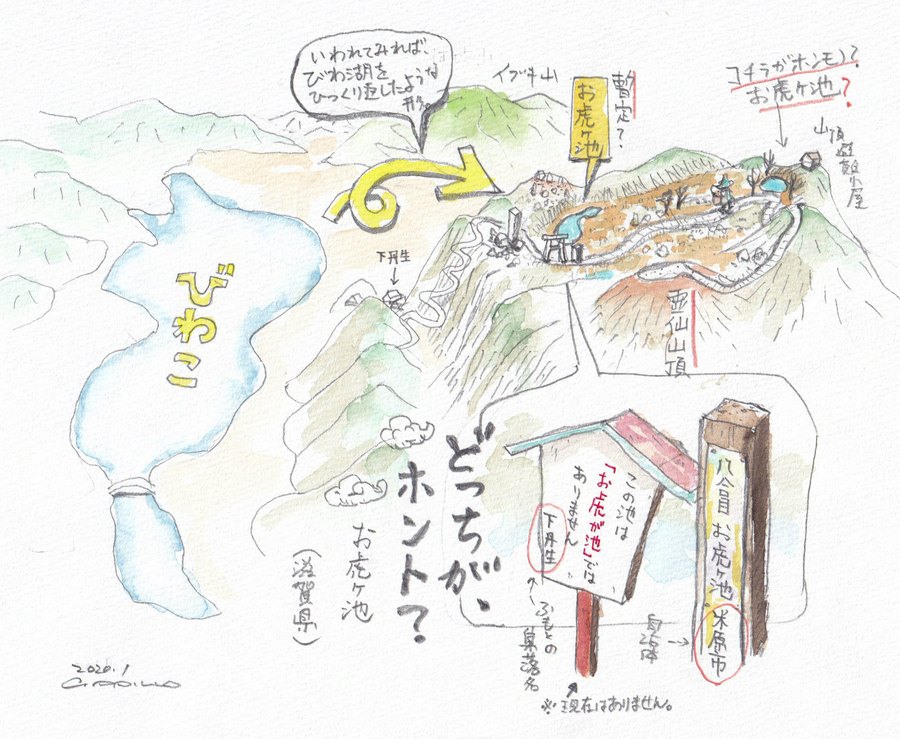 いわれてみれば、
びわ湖を
ひっくり返したような
形。
イブキ山
お虎ヶ池
暫定?
コチラがホンモノ?
お虎ケ池?
山頂避難小屋
下丹生
びわこ
霊仙山頂
どっちが、
ホント?
お虎ヶ池
(滋賀県)
この池は
「お虎が池」では
ありません
下丹生
ふもとの
集落名
※現在はありません。
八合目 お虎ヶ池 米原市
自治体
2020.1